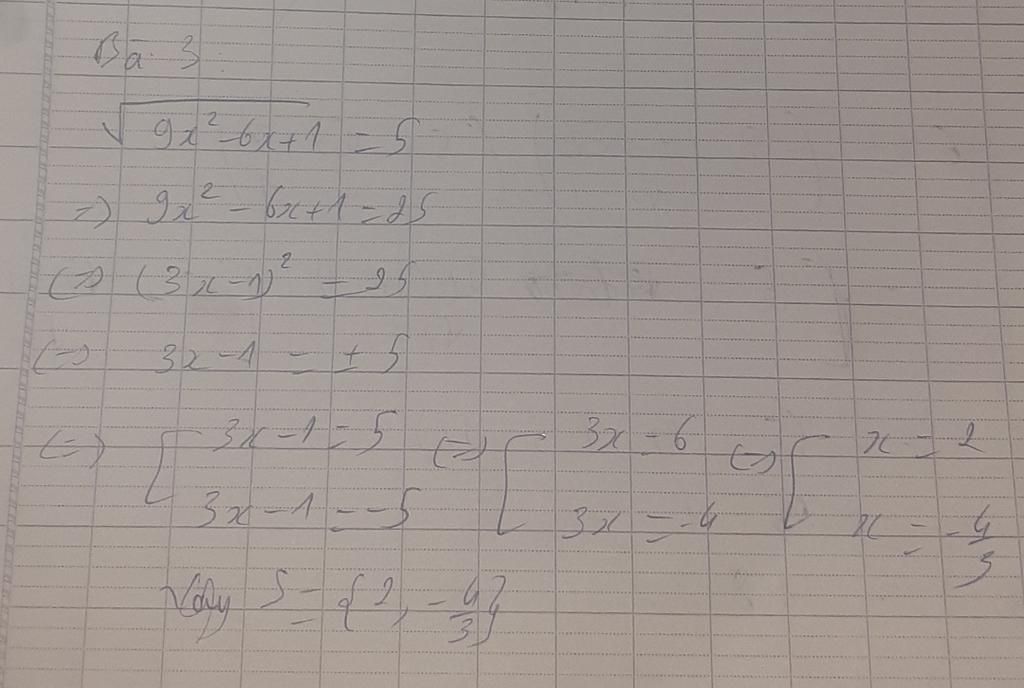 Bài 3
√(9x² - 6x + 1) = 5
=> 9x² - 6x + 1 = 25
<=> (3x - 1)² = 25
<=> 3x - 1 = ± 5
<=> [ 3x - 1 = 5 <=> [ 3x = 6 <=> [ x = 2
3x - 1 = -5 3x = -4 x = -4/3
Vậy S = {2, -4/3}